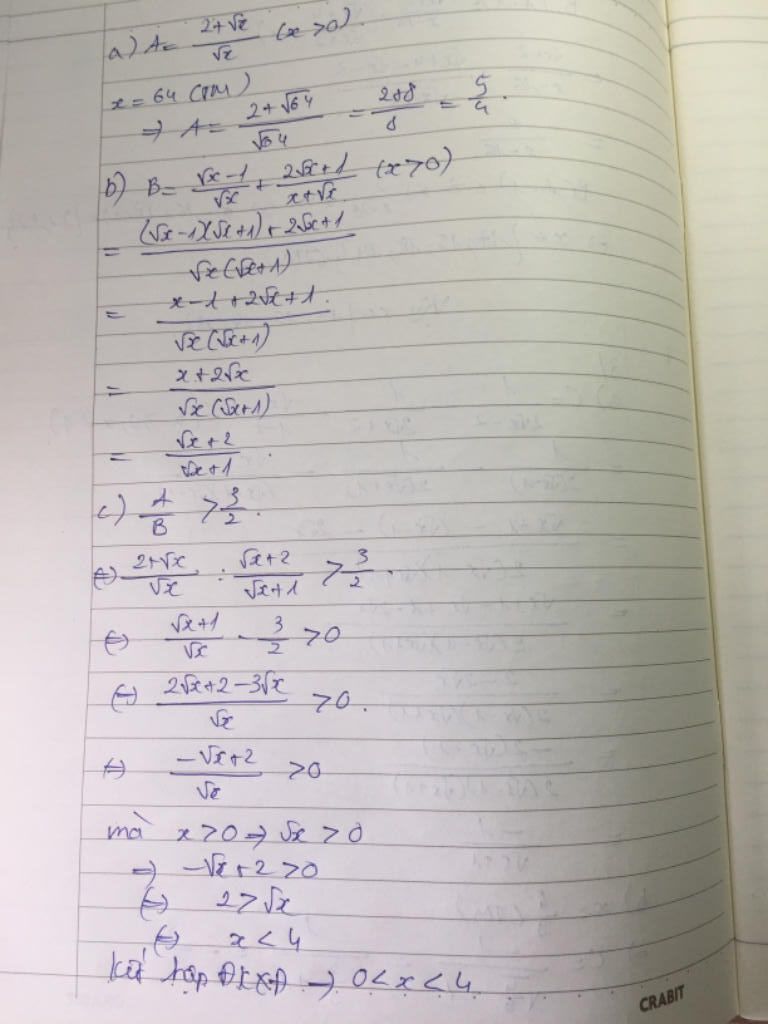 a) A = (2+√x)/√x (x>0).
x = 64 (TM)
=> A = (2+√64)/√64 = (2+8)/8 = 5/4.
b) B = (√x-1)/√x + (2√x+1)/(x+√x) (x>0)
= ((√x-1)(√x+1)+2√x+1)/(√x(√x+1))
= (x-1+2√x+1)/(√x(√x+1))
= (x+2√x)/(√x(√x+1))
= (√x+2)/(√x+1).
c) A/B > 3/2.
<=> (2+√x)/√x : (√x+2)/(√x+1) > 3/2.
<=> (√x+1)/√x - 3/2 > 0
<=> (2√x+2-3√x)/√x > 0.
<=> (-√x+2)/√x > 0
mà x>0 => √x > 0
=> -√x+2 > 0
<=> 2 > √x
<=> x < 4
kết hợp ĐKXĐ => 0 < x < 4
CRABIT